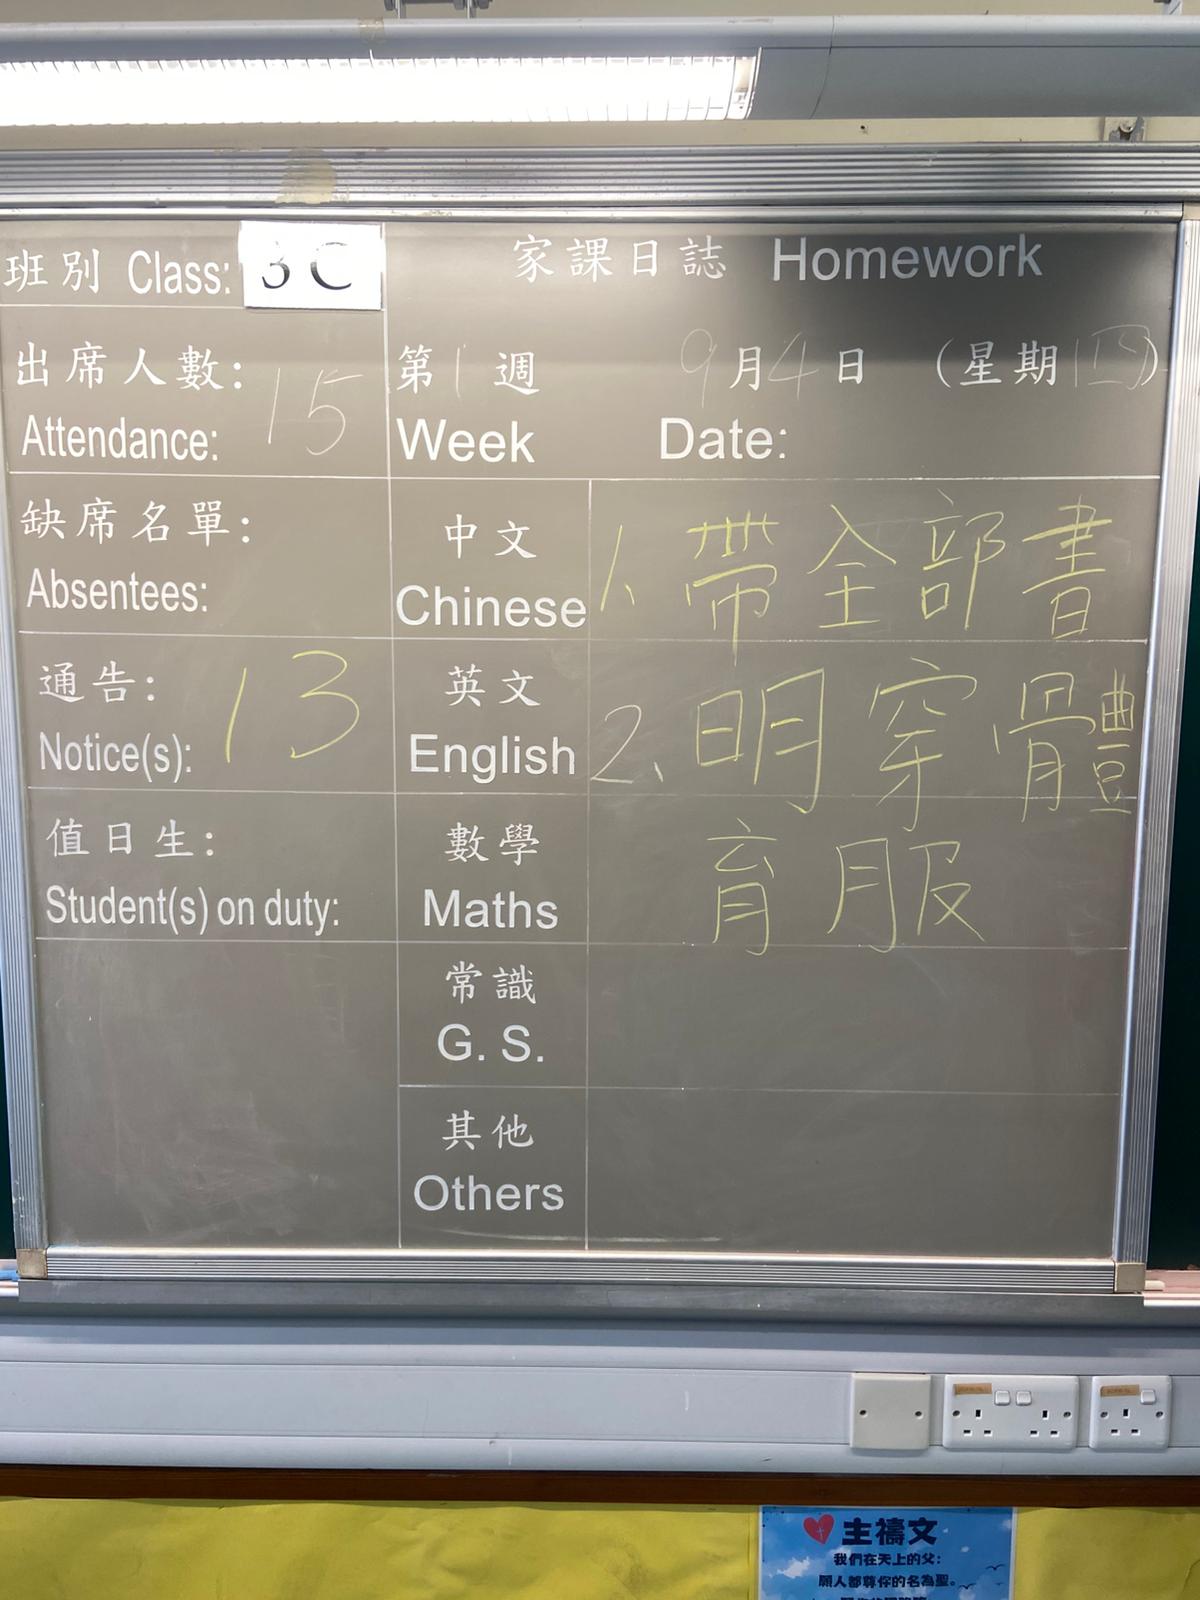 班別 Class: 3C
家課日誌 Homework
出席人數: 15
Attendance:
第1週 9月4日 (星期四)
Week Date:
缺席名單:
Absentees:
中文
Chinese
1、帶全部書
通告: 13
Notice(s):
英文
English
2、明穿體
值日生:
Student(s) on duty:
數學
Maths
育服
常識
G. S.
其他
Others
主禱文
我們在天上的父:
願人都尊你的名為聖。